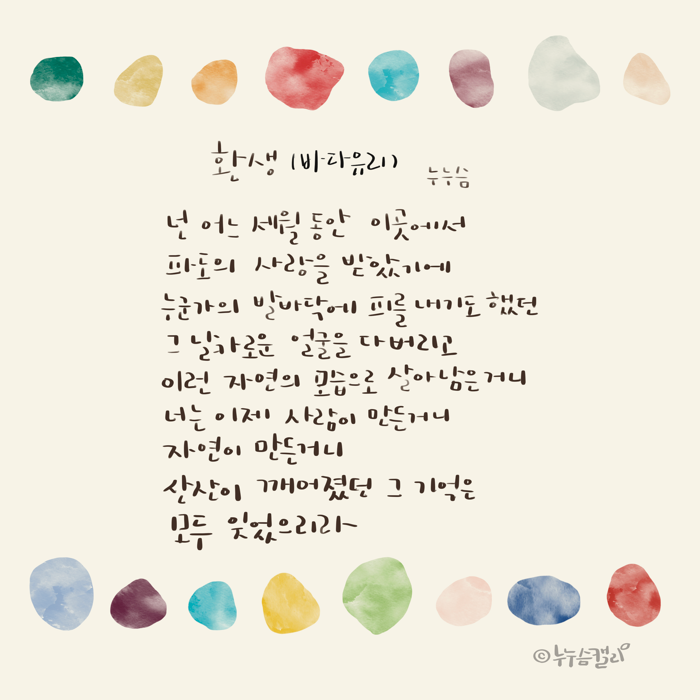 환생 (바다유리)
누누슴
넌 어느 세월 동안 이곳에서
파도의 사랑을 받았기에
누군가의 발바닥에 피를 내기도 했던
그 날카로운 얼굴을 다 버리고
이런 자연의 모습으로 살아남은거니
너는 이제 사람이 만든거니
자연이 만든거니
산산이 깨어졌던 그 기억은
모두 잊었으리라
©누누슴캘리